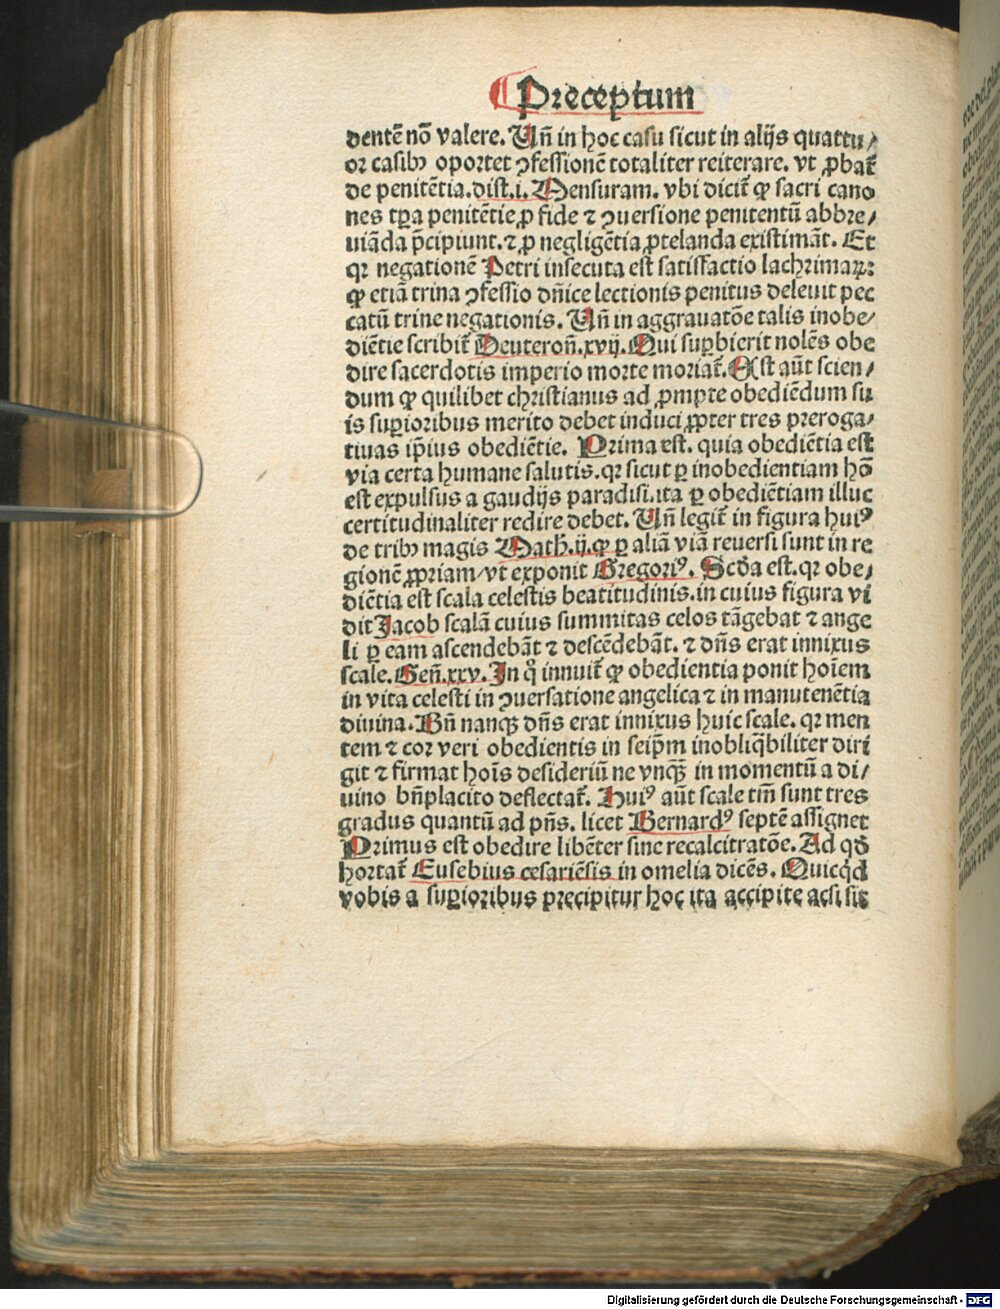 ¶ Preceptum
dentē nō valere. Uñ in hoc casu sicut in alijs quattu/
or casibꝰ oportet ꝯfessionē totaliter reiterare. vt ꝓbat̄
de penitētia.dist.i. Mensuram. vbi dicit̄ ꝙ sacri cano
nes tp̄a penitētie ꝓ fide ⁊ ꝯuersione penitentū abbre/
uiāda p̄cipiunt.⁊ ꝓ negligētia ꝓtelanda existimāt. Et
qꝛ negationē Petri insecuta est satisfactio lachrimaꝝ:
ꝙ etiā trina ꝯfessio dñice lectionis penitus deleuit pec
catū trine negationis. Uñ in aggrauatōe talis inobe/
diētie scribit̄ Deuteroñ.xvij. Qui suꝑbierit nolēs obe
dire sacerdotis imperio morte moriat̄. Est aūt scien/
dum ꝙ quilibet christianus ad ꝓmpte obediēdum su
is suꝑioribus merito debet induci ꝓpter tres preroga/
tiuas ip̄ius obediētie. Prima est. quia obediētia est
via certa humane salutis.qꝛ sicut ꝑ inobedientiam hō
est expulsus a gaudijs paradisi.ita ꝑ obediētiam illuc
certitudinaliter redire debet. Uñ legit̄ in figura huiꝰ
de tribꝰ magis Math̄.ij.ꝙ ꝑ aliā viā reuersi sunt in re
gionē ꝓpriam/vt exponit Gregoriꝰ. Scd̄a est.qꝛ obe/
diētia est scala celestis beatitudinis.in cuius figura vi
dit Jacob scalā cuius summitas celos tāgebat ⁊ ange
li ꝑ eam ascendebāt ⁊ descēdebāt. ⁊ dñs erat innixus
scale. Geñ.xxv. In qͦ innuit̄ ꝙ obedientia ponit hoīem
in vita celesti in ꝯuersatione angelica ⁊ in manutenētia
diuina. Bñ nanqꝫ dñs erat innixus huic scale. qꝛ men
tem ⁊ cor veri obedientis in seip̄m inobliq̄biliter diri
git ⁊ firmat hoīs desideriū ne vnqꝫ̄ in momentū a di/
uino bñplacito deflectat̄. Huiꝰ aūt scale tm̄ sunt tres
gradus quantū ad p̄ns. licet Bernardꝰ septē assignet
Primus est obedire libēter sine recalcitratōe. Ad qd̄
hortat̄ Eusebius cesariēsis in omelia dicēs. Quicq̄d
vobis a suꝑioribus precipitur hoc ita accipite acsi sit
Digitalisierung gefördert durch die Deutsche Forschungsgemeinschaft - DFG